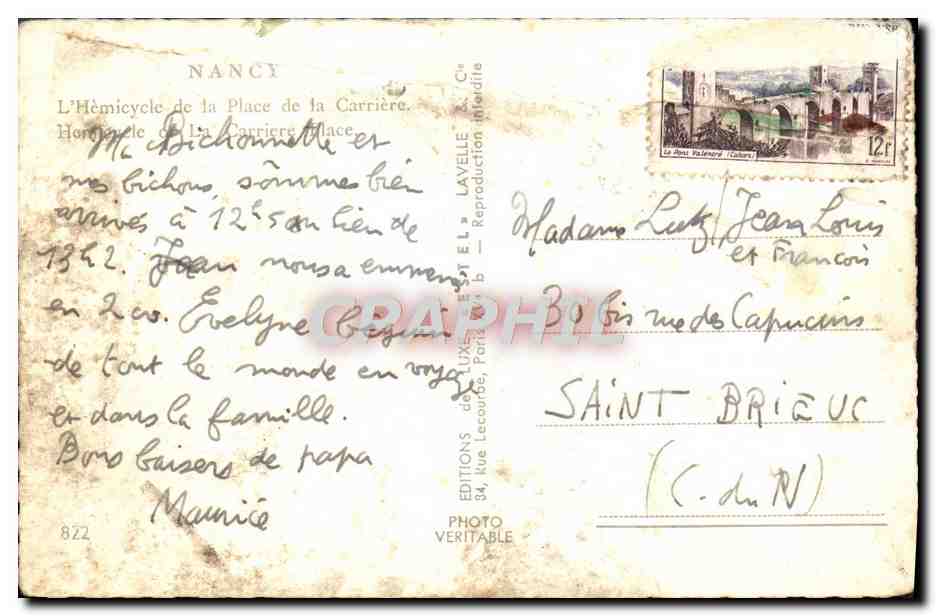 NANCY
L'Hémicycle de la Place de la Carrière.
Hemicycle of La Carriere Place.
Ma Bichonnette et
mes bichons, sommes bien
arrivés à 12h5 au lieu de
13h2. Jean nous a emmené
en 2 cv. Evelyne béguin
de tout le monde en voyage
et dans la famille.
Bons baisers de papa
Maurice
822
EDITIONS de LUXE « ESTEL » LAVELLE & Cie
34, Rue Lecourbe, Paris - Reproduction interdite
PHOTO
VERITABLE
Le Pont Valentré (Cahors)
12f
Madame Lutz, Jean Louis
et François
30 bis rue des Capucins
SAINT BRIEUC
(C. du N)
CRAPHIL